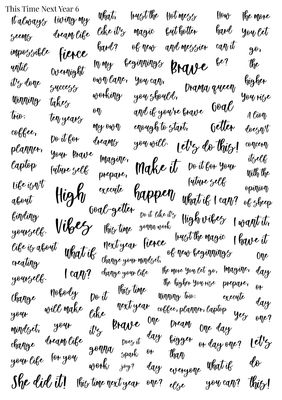 This Time Next Year 6
It always
seems
impossible
until
it's done
winning
trio:
coffee,
planner,
laptop
Life isn't
about
finding
yourself.
life is about
creating
yourself.
Change
your
mindset,
change
your life
She did it!
living my
dream life
fierce
Overnight
success
takes
ten
years
Do it for
your Brave
future self
High
Vibes
What if
I can?
Nobody
will make
your
dream
for you
This time next year
What,
like it's
hard?
In my
own lane
working
on
my own
dreams
Imagine,
prepare,
execute
Goal-getter
This time
next year
Change your mindset,
change your life
Do it
like
it's
gonna
work
trust the
magic
of new
beginnings
You can,
you should,
and if you're brave
enough to start,
you will.
Make it
happen
Do it like it's
gonna work
fierce
This time
next year
Brave
Does it
spark
joy?
Hot mess
but hotter
and messier
Brave
Drama queen
Goal
Getter
Let's do this!
Do it for your
future self
What if I can?
High vibes
trust the magic
of new beginnings
the more you let go,
the higher you rise
winning trio:
coffee, planner, laptop
One
day
or
day
one?
Dream
bigger
than
everyone
else
How
hard
can it
be?
Imagine,
prepare,
execute
One day
or day
one?
What if
you can?
the more
you let
go,
the
higher
you rise
A lion
doesn't
concern
itself
with the
opinion
of sheep
I want it,
I have it
One
day
or
day
one?
Yes
Let's
do
this!